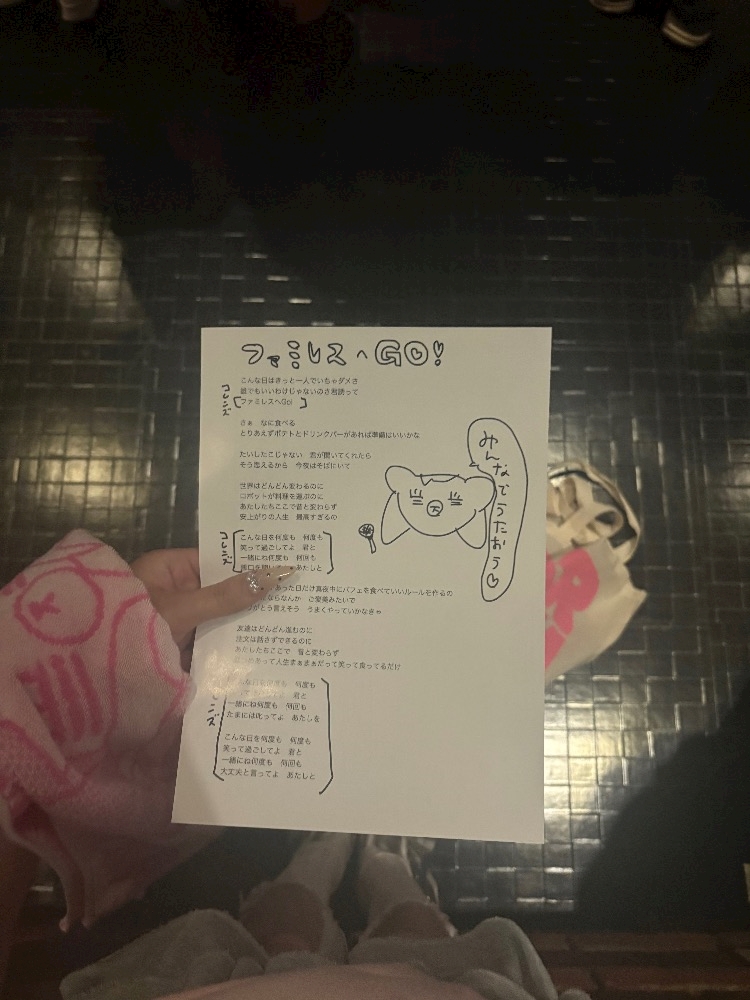 ファミレスへGO!
こんな日はきっと一人でいちゃダメさ
誰でもいいわけじゃないのさ君誘って
コレンズ
ファミレスへGo!
さぁ なに食べる
とりあえずポテトとドリンクバーがあれば準備はいいかな
たいしたことじゃない 君が聞いてくれたら
そう思えるから 今夜はそばにいて
世界はどんどん変わるのに
ロボットが料理を運ぶのに
あたしたちここで昔と変わらず
安上がりの人生 最高すぎるの
コレンズ
こんな日を何度も 何度も
笑って過ごしてよ 君と
一緒にね何度も 何回も
あたしと
みんなでうたおう♡
あった日だけ真夜中にパフェを食べていいルールを作るの
ならなんか ご褒美みたいで
がとう言えそう うまくやっていかなきゃ
友達はどんどん進むのに
注文は話さずできるのに
あたしたちここで 昔と変わらず
あって人生まぁまぁだって笑って食ってるだけ
ンズ
こんな日を何度も 何度も
君と
一緒にね何度も 何回も
たまには叱ってよ あたしを
こんな日を何度も 何度も
笑って過ごしてよ 君と
一緒にね何度も 何回も
大丈夫と言ってよ あたしと